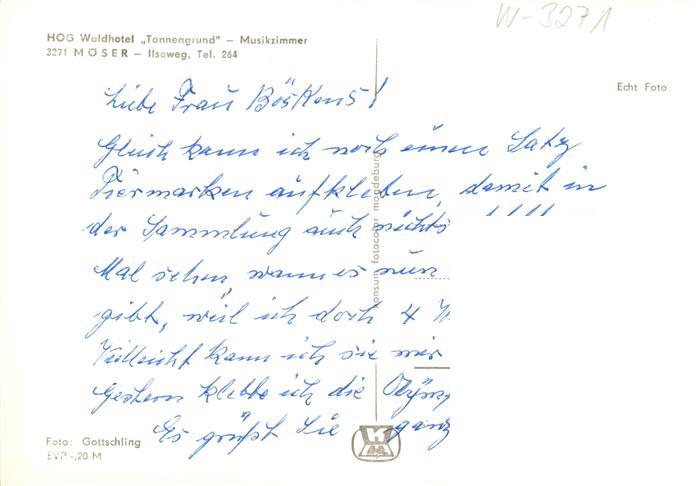 W-3271
HOG Waldhotel „Tannengrund" – Musikzimmer
3271 MÖSER – Ilseweg, Tel. 264
Echt Foto
Liebe Frau Böskens!
Gleich kann ich noch einen Satz
Tiermarken aufkleben, damit in
der Sammlung auch nichts
Mal sehen, wann es nun
gibt, weil ich doch 4
Vielleicht kann ich sie mir
Gestern klebte ich die
Es grüßt Sie ganz
konsum fotocolor magdeburg
Foto: Gottschling
EVP -,20 M